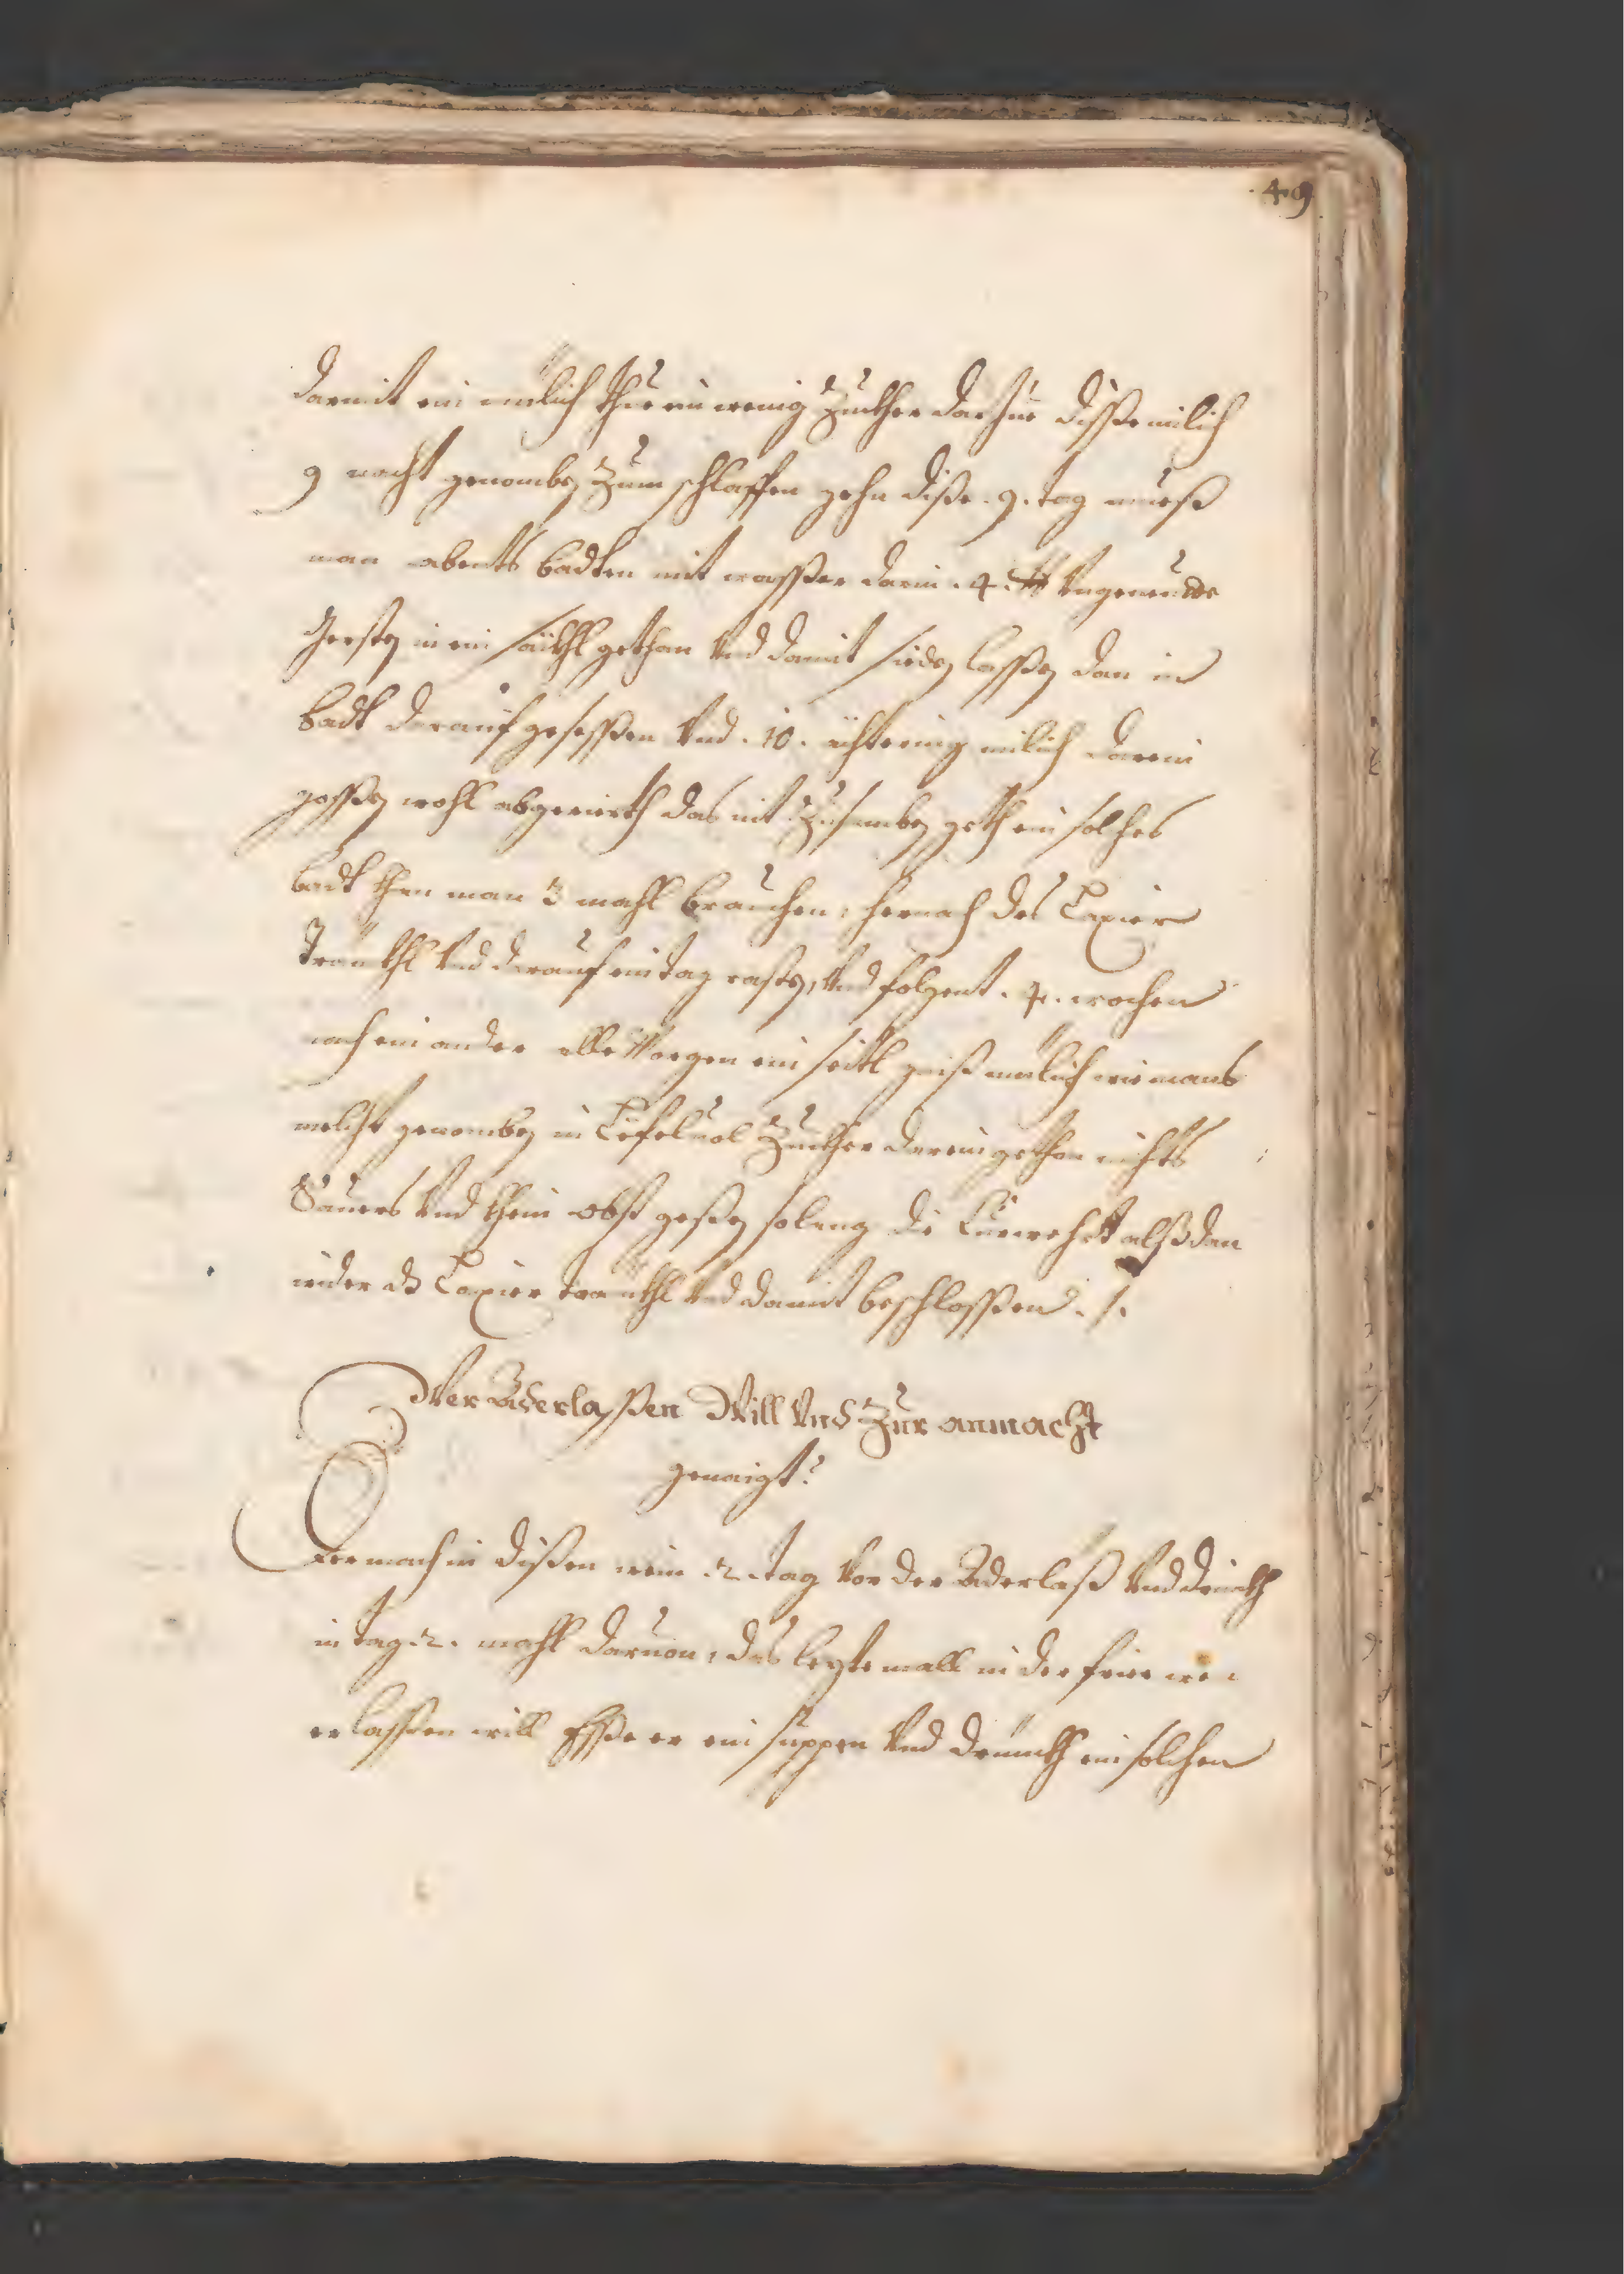 49
darmit ein milich thue ein wenig Zuckher darzue disse milich
9 nacht genomben Zum schlaffen gehn dise . 9. tag mueß
man abents badten mit wasser darin . 4 . ℔ Ungerende
Gersten in ein säckhl gethan Und damit sieden lassen dan in
badt darauf gesessen Und . 10 . ächtering milich darein
gossen wohl abgerierth das nit Zusamben geth ein solches
badt khan man 3 mahl brauchen, hernach des Laxier
Tränckhl Und darauf ein tag rasten, Und folgent . 4 . wochen
nach ein ander alle Morgen ein seitl geiß milich wie mans
melcht genomben in Lefel uol Zuckher darein gethan nichts
Saures Und khein obst gessen solang die Cur wehrt alßdan
wider dz Laxier tränckhl Und damit beschlossen . / .
Wer Aderlassen Will Und Zur anmacht
genaigt?
Der mach in dissen wein .2. tag Vor der Aderlaß Und drinckh
in tag .2. mahl daruon, das lezte mall in der frue wen
er lassen will Esse er ein suppen Und drinckh ein solchen